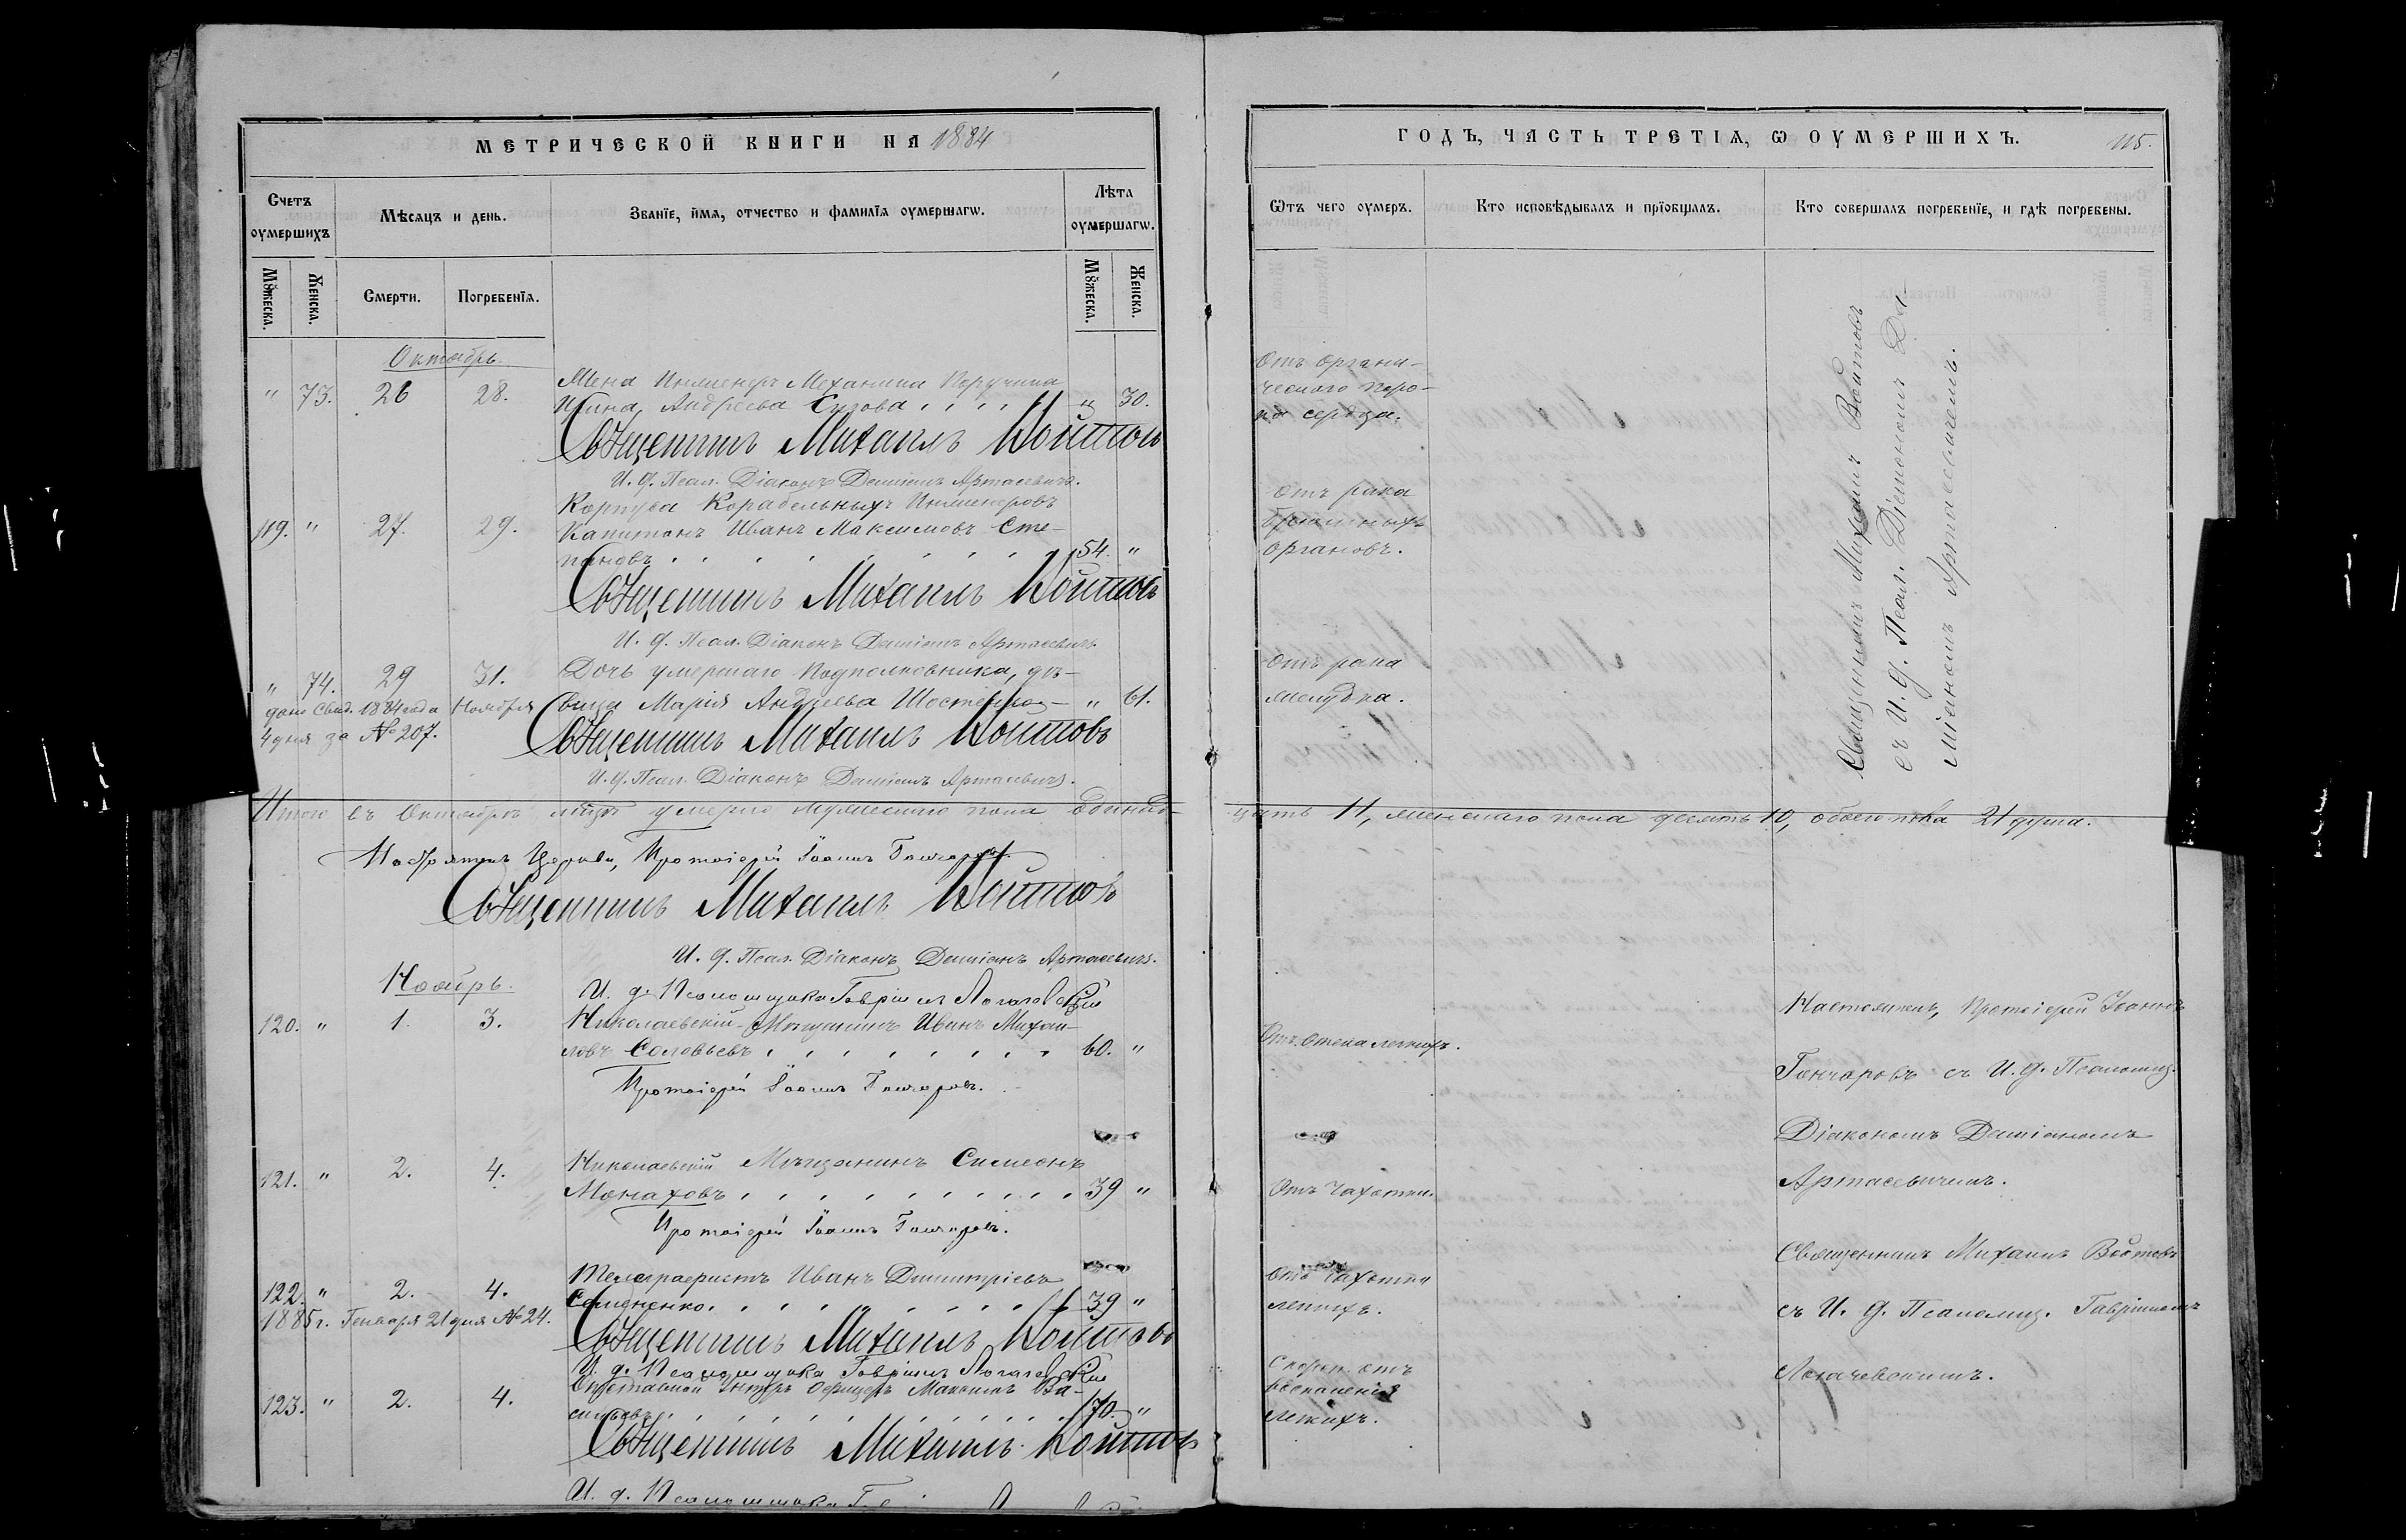 МЕТРИЧЕСКОЙ КНИГИ НА 1884
Счетъ оумершихъ
Мѣсяцъ и день.
Званїе, имя, отчество и фамилїа оумершагѡ.
Лѣта оумершагѡ.
Мꙋжеска.
Женска.
Смерти.
Погребенїѧ.
Мꙋжеска.
Женска.
Октябрь.
" 73. 26 28. Жена Инженеръ Механика Поручика
Андреева Сизова " 30.
Священникъ Михаилъ Войтовъ
И. д. Псал. Діаконъ Даміанъ Артасевичъ.
Корпуса Корабельныхъ Инженеровъ
119. " 27. 29. Капитанъ Иванъ Максимовъ Сте-
пановъ 54. "
Священникъ Михаилъ Войтовъ
И. д. Псал. Діаконъ Даміанъ Артасевичъ.
" 74. 29 31. Дочь умершаго Подполковника, дѣ-
вица Марія Андреева " 61.
дано Свид. 1884 года Ноября
4 дня за № 207.
Священникъ Михаилъ Войтовъ
И. д. Псал. Діаконъ Даміанъ Артасевичъ.
Итого въ Октябрѣ мѣсяцѣ умерло мужескаго пола одинад-
Настоятель Церкви, Протоіерей Іоаннъ Гончаровъ.
Священникъ Михаилъ Войтовъ
И. д. Псал. Діаконъ Даміанъ Артасевичъ.
Ноябрь.
И. д. Псаломщика Гавріилъ Логачевскій
120. " 1. 3. Николаевскій Мѣщанинъ Иванъ Михаи-
ловъ Соловьевъ 60. "
Протоіерей Іоаннъ Гончаровъ.
121. " 2. 4. Николаевскій Мѣщанинъ Симеонъ
Монаховъ 39 "
Протоіерей Іоаннъ Гончаровъ.
122. " 2. 4. Телеграфистъ Иванъ Димитріевъ
Семененко 39 "
1885 г. Генваря 21 дня № 24.
Священникъ Михаилъ Войтовъ
И. д. Псаломщика Гавріилъ Логачевскій
123. " 2. 4. Отставной Унтеръ Офицеръ Максимъ Ва-
сильевъ 70. "
Священникъ Михаилъ Войтовъ
И. д. Псаломщика
ГОДЪ, ЧАСТЬ ТРЕТІѦ, Ѡ ОУМЕРШИХЪ. 115.
Ѿтъ чего оумеръ.
Кто исповѣдывалъ и прїобщалъ.
Кто совершалъ погребенїе, и гдѣ погребены.
Отъ органи-
ческаго поро-
ка сердца.
Отъ рака
брюшныхъ
органовъ.
Отъ рака
желудка.
Священникъ Михаилъ Войтовъ
съ И. д. Псал. Діакономъ Да-
міаномъ Артасевичемъ.
цать 11, женскаго пола десять 10, обоего пола 21 душа.
Отъ отека легкихъ.
Настоятель, Протоіерей Іоаннъ
Гончаровъ съ И. д. Псаломщ.
Діакономъ Даміаномъ
Артасевичемъ.
Отъ Чахотки.
Отъ Чахотки
легкихъ.
Священникъ Михаилъ Войтовъ
съ И. д. Псаломщ. Гавріиломъ
Логачевскимъ.
отъ
воспаленія
легкихъ.